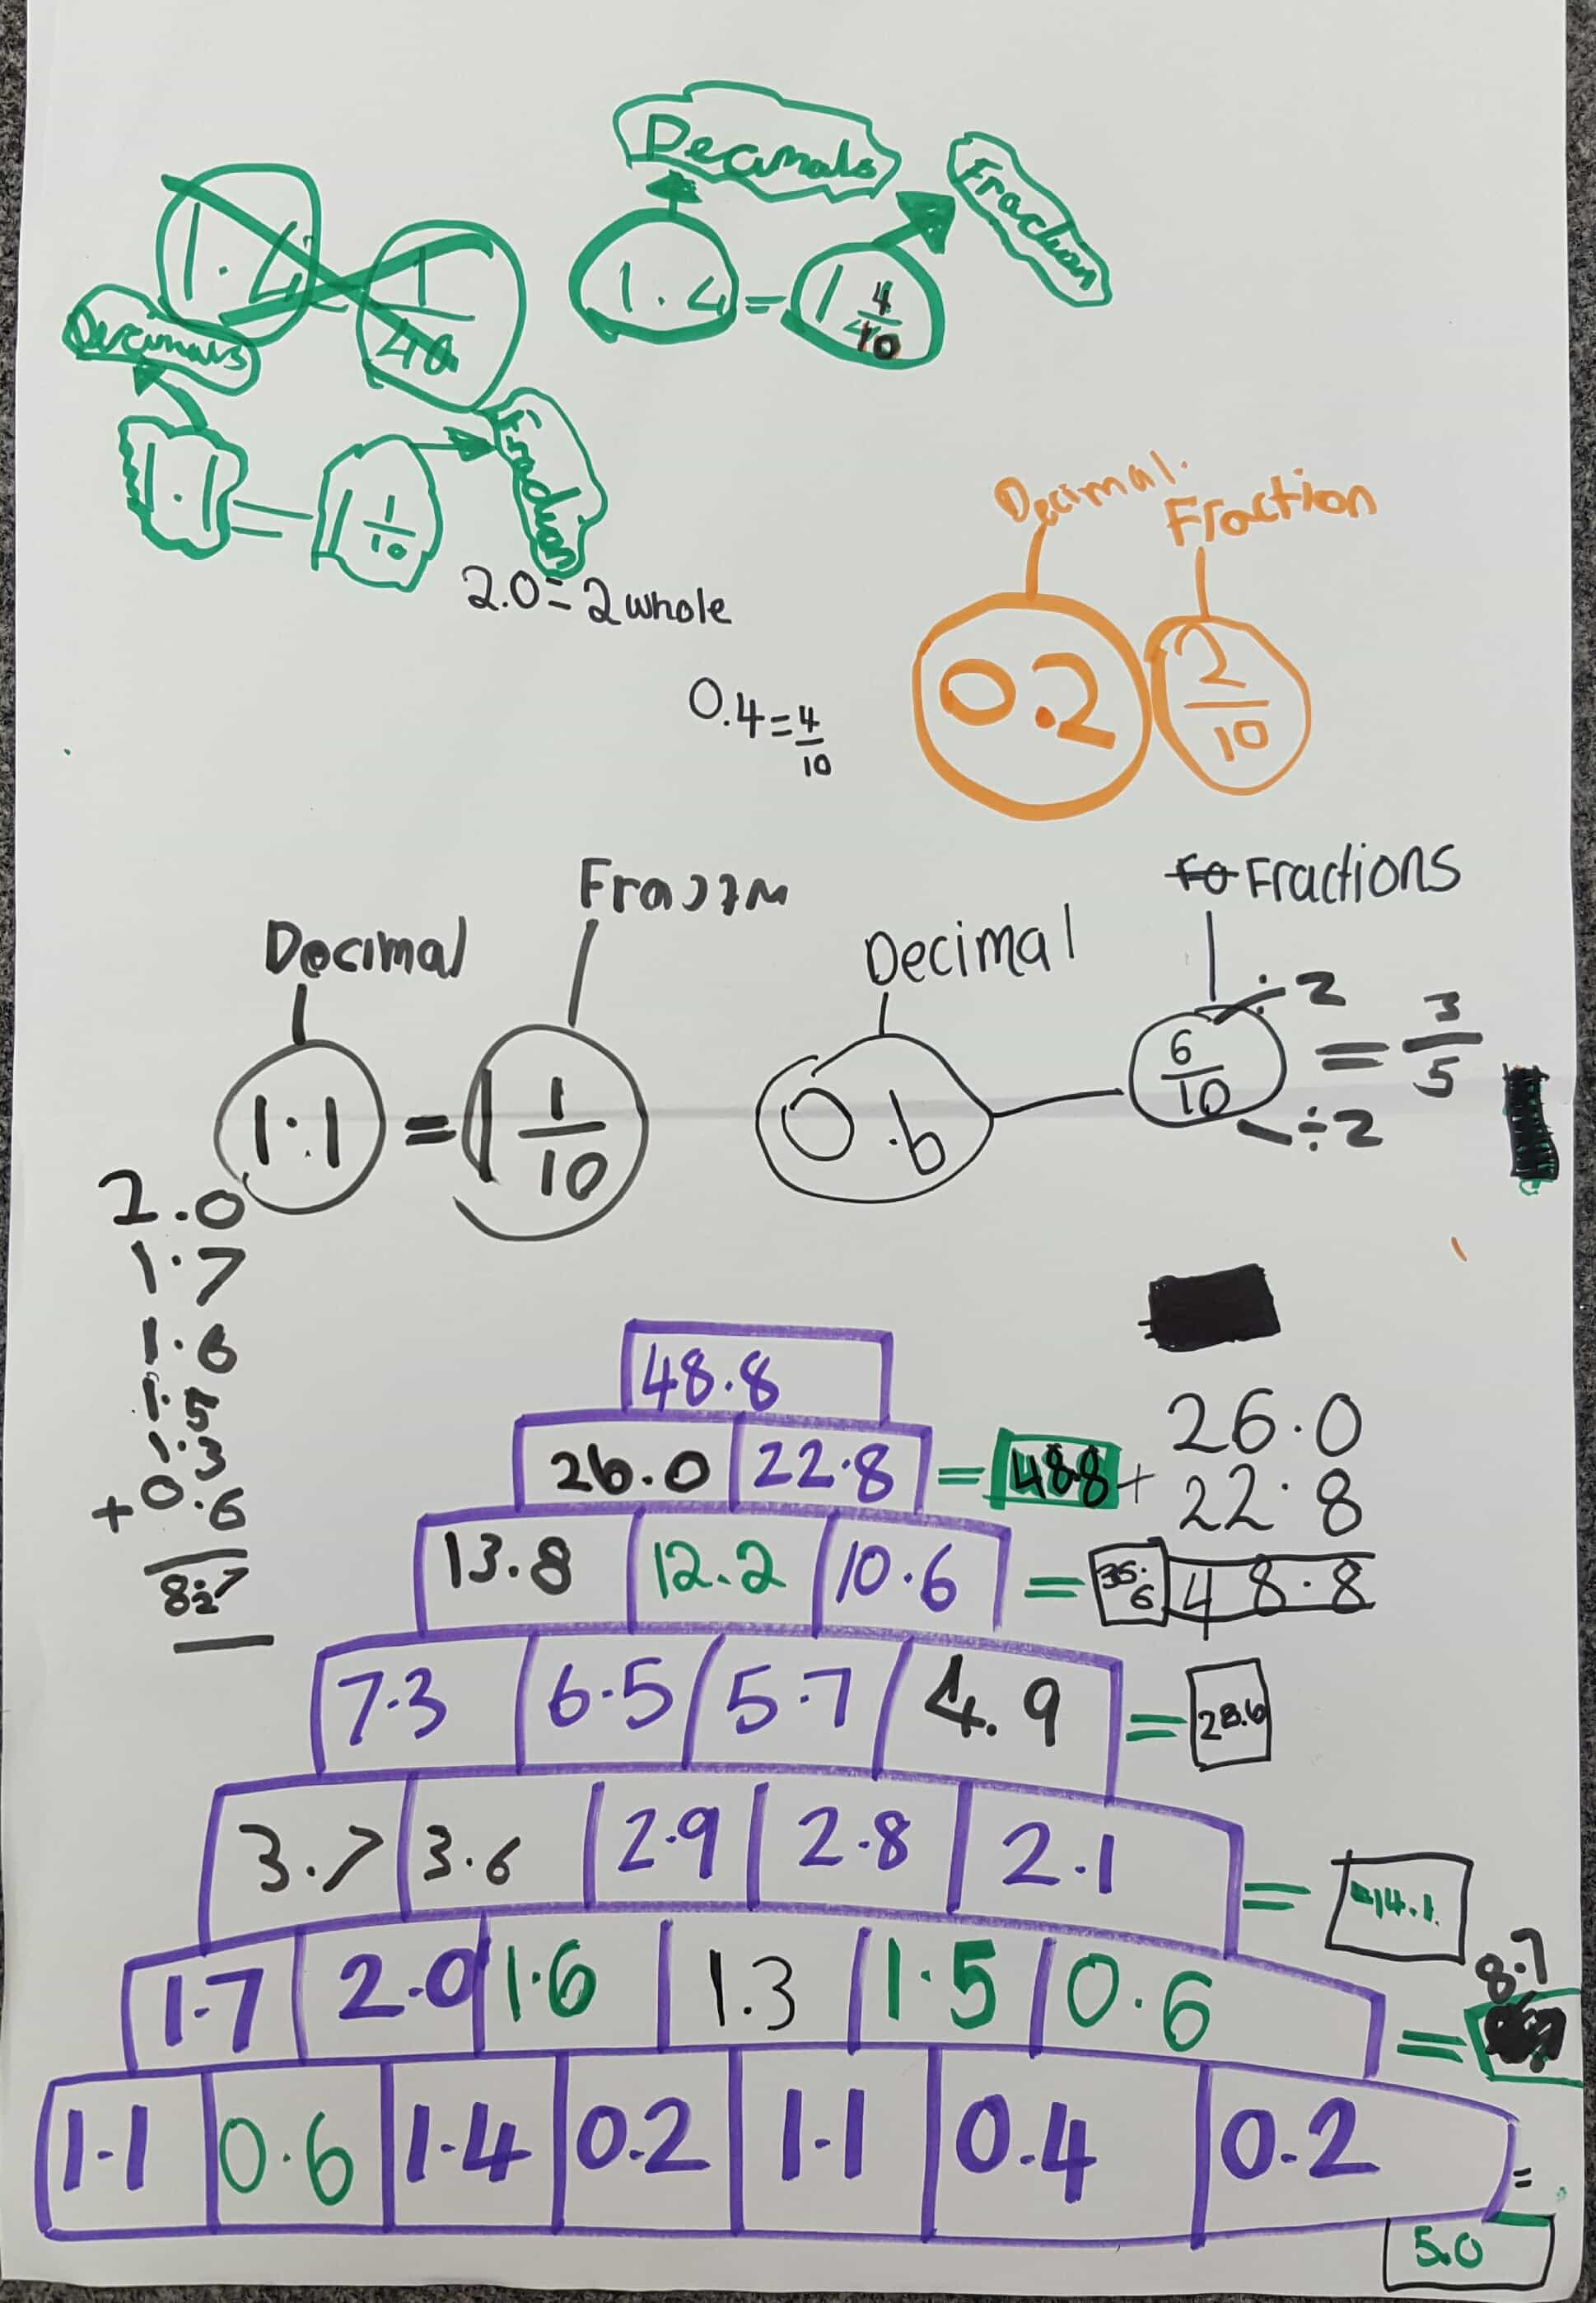 Decimals
Fraction
1.4 = 1/40
1.4 = 1 4/10
Decimals
1.1 = 1 1/10
Fraction
2.0=2 whole
Decimal. Fraction
0.2 2/10
0.4=4/10
Decimal
1.1 = 1 1/10
Decimal
Fo Fractions
0.6 6/10 ÷2 ÷2 = 3/5
2.0
1.7
1.6
1.5
1.3
+0.6
8.7
48.8
26.0 22.8 = 48.8
26.0
+ 22.8
48.8
13.8 12.2 10.6 = 36.6
7.3 6.5 5.7 4.9 = 28.6
3.7 3.6 2.9 2.8 2.1 = 14.1
1.7 2.0 1.6 1.3 1.5 0.6 = 8.7
1.1 0.6 1.4 0.2 1.1 0.4 0.2 =
5.0